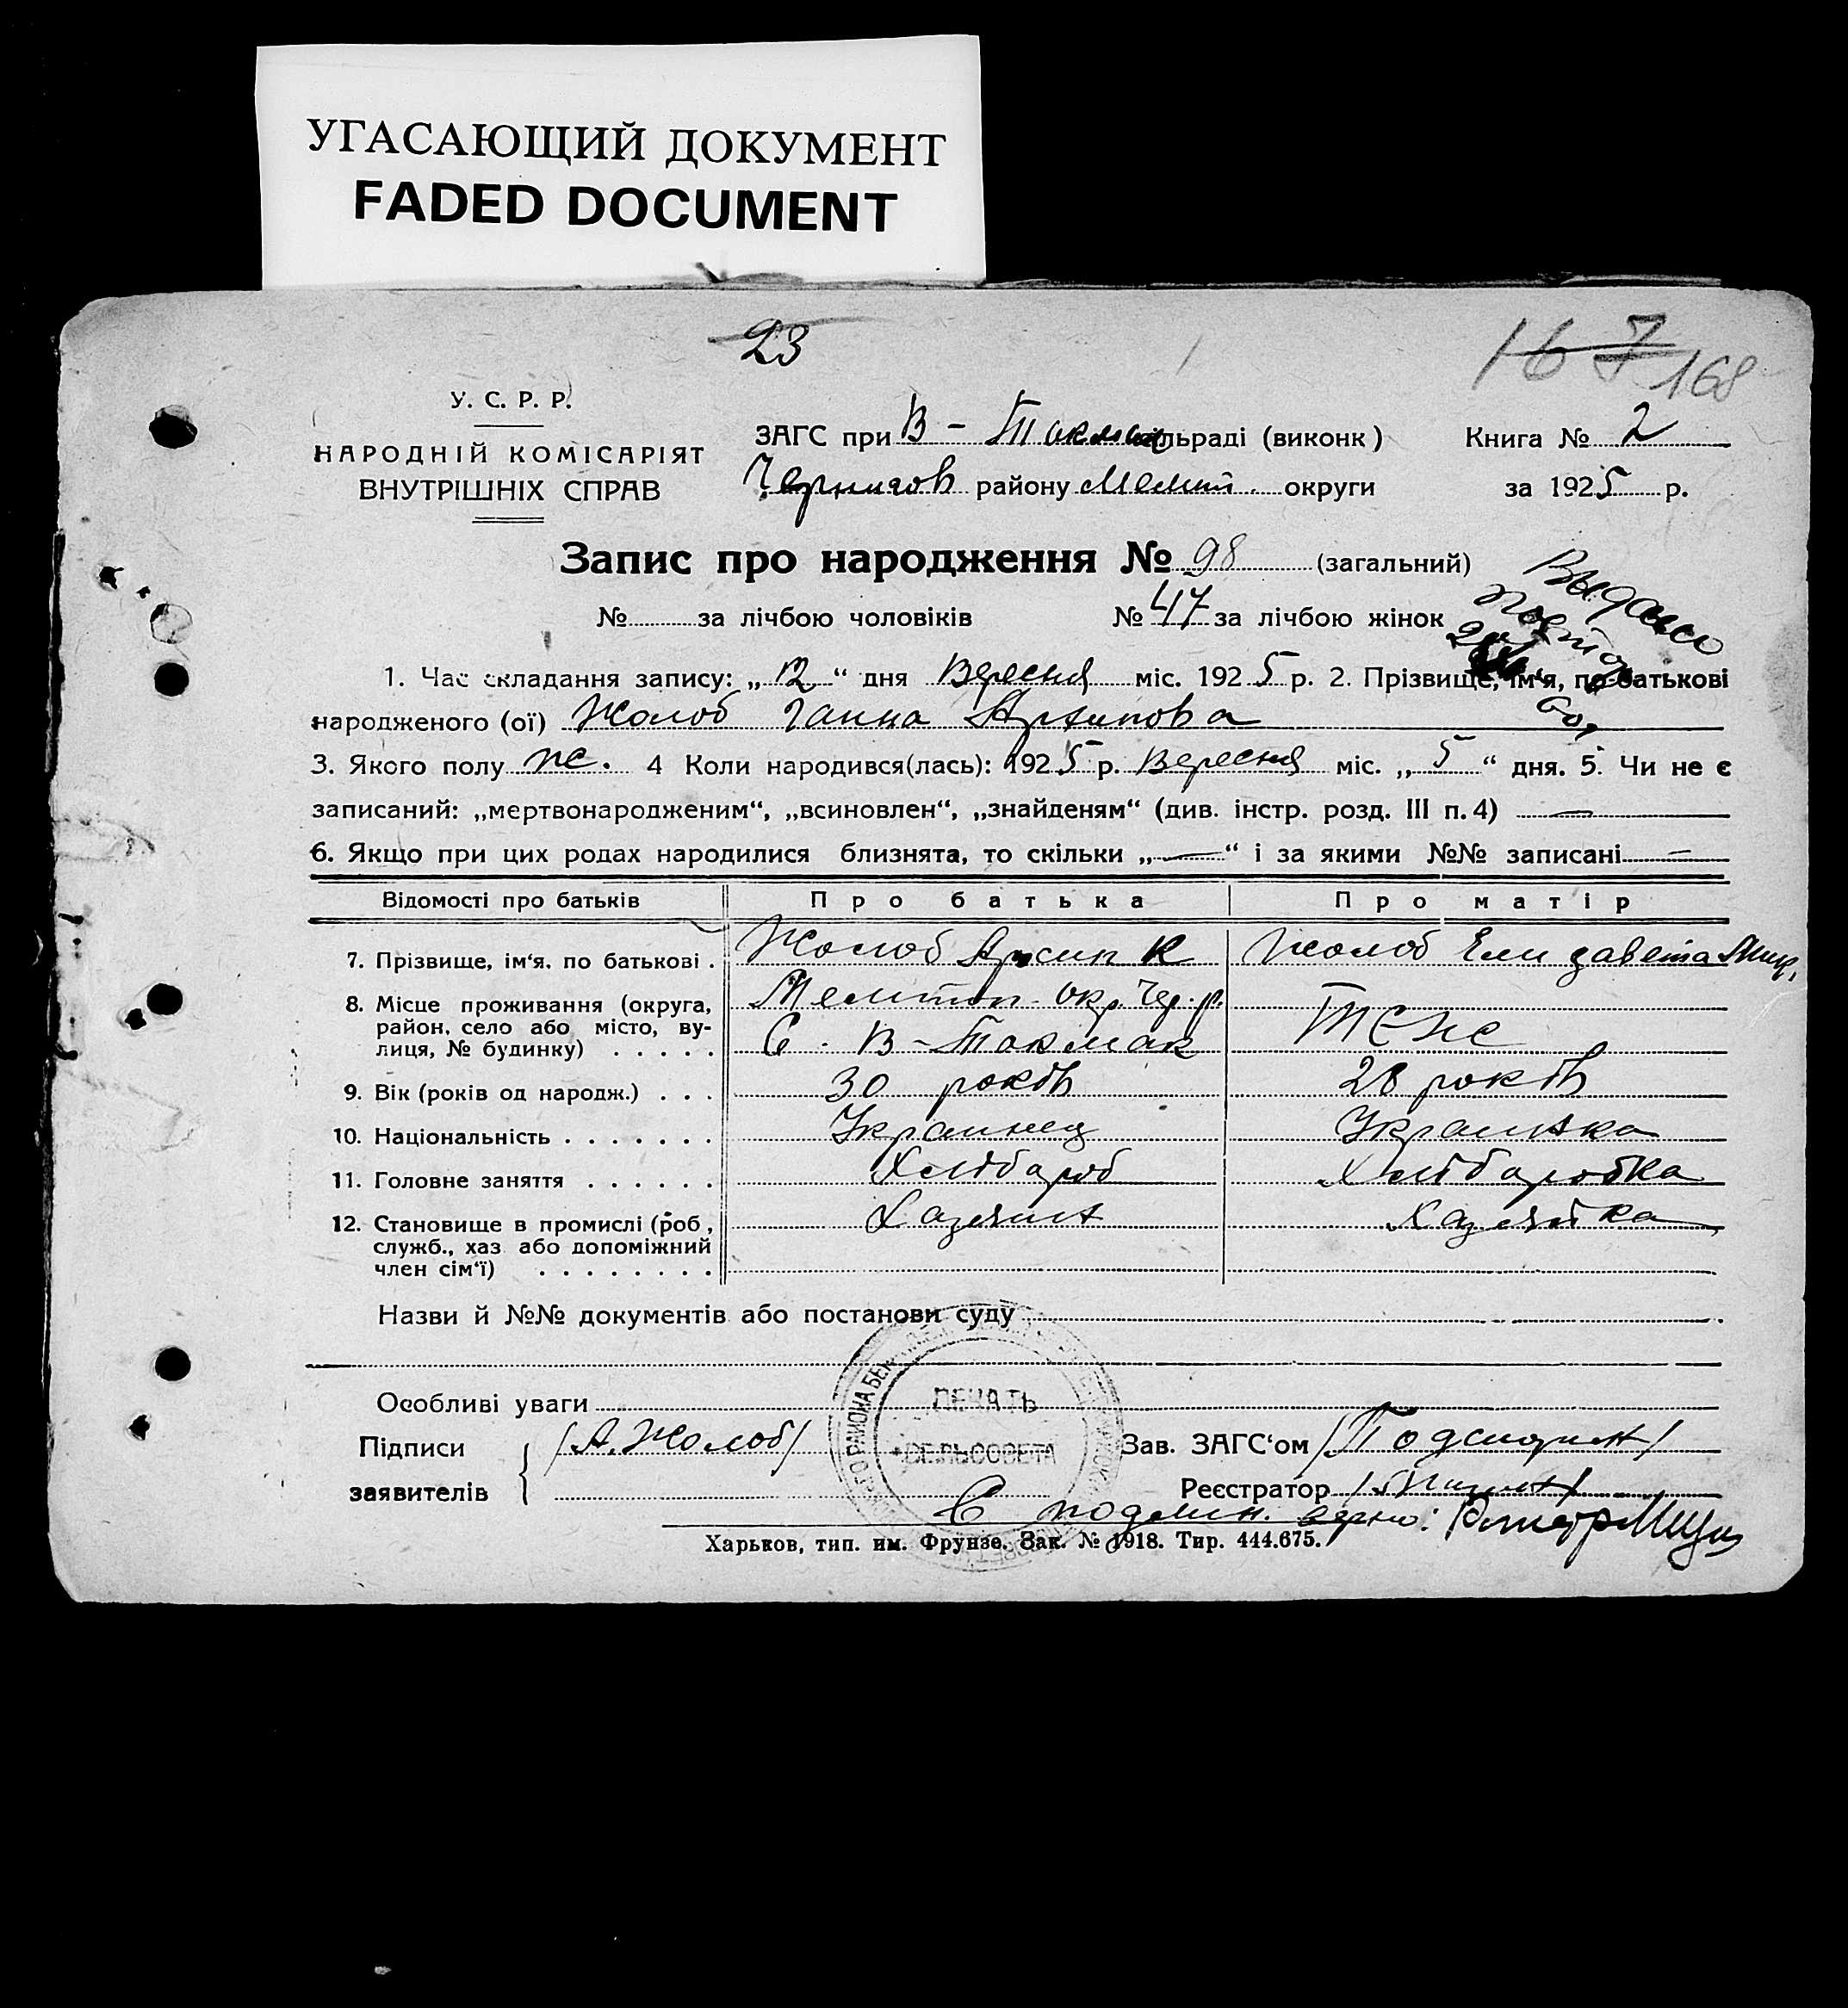 УГАСАЮЩИЙ ДОКУМЕНТ
FADED DOCUMENT
23
16 7 168
У. С. Р. Р.
НАРОДНІЙ КОМІСАРІЯТ
ВНУТРІШНІХ СПРАВ
ЗАГС при В-Токмак сільраді (виконк) Книга № 2
Чернигов району Мелит. округи за 1925 р.
Запис про народження № 98 (загальний)
№ за лічбою чоловіків № 47 за лічбою жінок
Выдано
повтор
1. Час складання запису: „12“ дня Вересня міс. 1925 р. 2. Прізвище, ім'я, по батькові
народженого (ої) Жолоб Ганна Архипова
3. Якого полу ж. 4 Коли народився(лась): 1925 р. Вересня міс. „5“ дня. 5. Чи не є
записаний: „мертвонародженим“, „всиновлен“, „знайденям“ (див. інстр. розд. III п. 4) —
6. Якщо при цих родах народилися близнята, то скільки „—“ і за якими №№ записані —
Відомості про батьків Про батька Про матір
7. Прізвище, ім'я, по батькові . Жолоб К Жолоб Елизавета
8. Місце проживання (округа, район, село або місто, вулиця, № будинку) . . . . . Мелитоп. окр. Чер. р.
С. В-Токмак Теж
9. Вік (років од народж.) . . . 30 років 28 років
10. Національність . . . . . . . Украинец Украинка
11. Головне заняття . . . . . . Хлібороб Хліборобка
12. Становище в промислі (роб, служб., хаз або допоміжний член сім'ї) . . . . . . . . Хазяин Хазяйка
Назви й №№ документів або постанови суду
Особливі уваги
ПЕЧАТЬ
СЕЛЬСОВЕТА
Підписи
заявителів
/А. Жолоб/
Зав. ЗАГС'ом
Реєстратор
С подлин. верно:
Харьков, тип. им. Фрунзе. Зак. № 1918. Тир. 444.675.